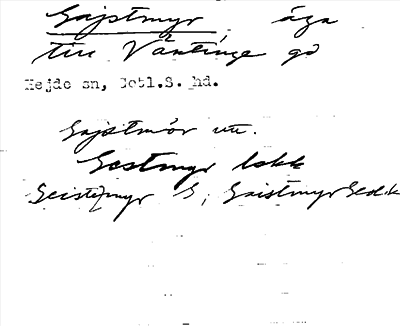 Gajstmyr, äga
till Väntinge gd
Hejde sn, Gotl.S. hd.
Gajstmör utt.
Gestmyr lskk
Geistmyr S; Gaistmyr Ged.k